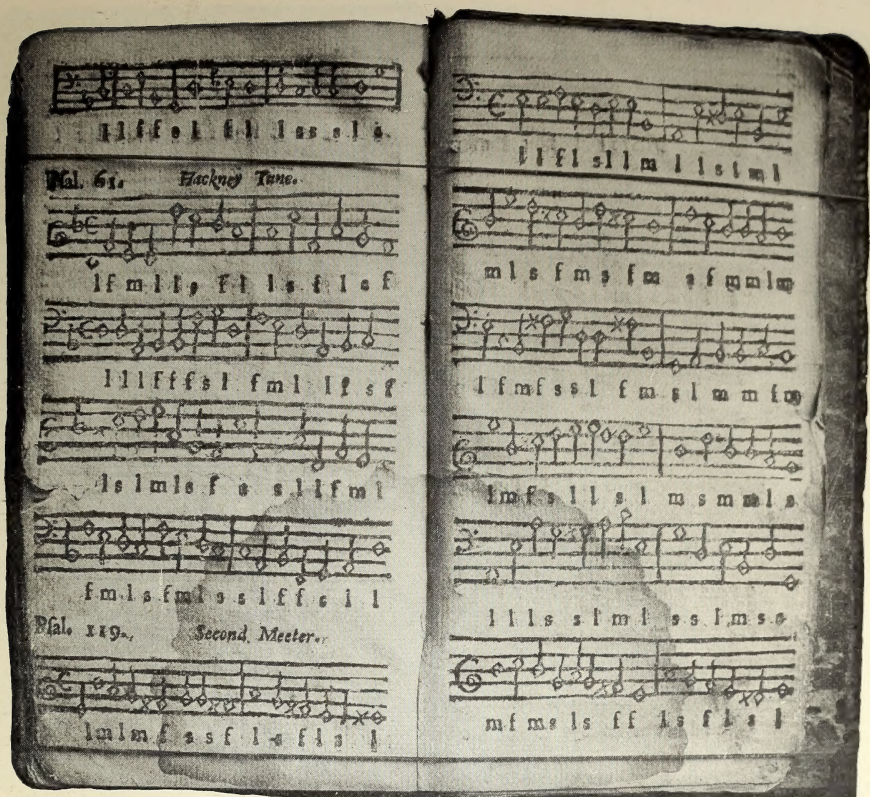 l l f f s l f l l s s s l s
Psal. 61. Hackney Tune.
l f m l l s f l l s f l s f
l l l f f f s l f m l l f s f
l s l m l s f s s l l f m l
f m l s f m l s s l f f s l l
Psal. 119. Second Meeter.
l m l m f s s f l s f l s l
l l f l s l l m l l s l m l
m l s f m s f m s f m m l m
l f m f s s l f m s l m m f m
l m f s l l s l m s m m l s
l l l s s l m l s s l m s s
m f m s l s f f l s f l s l